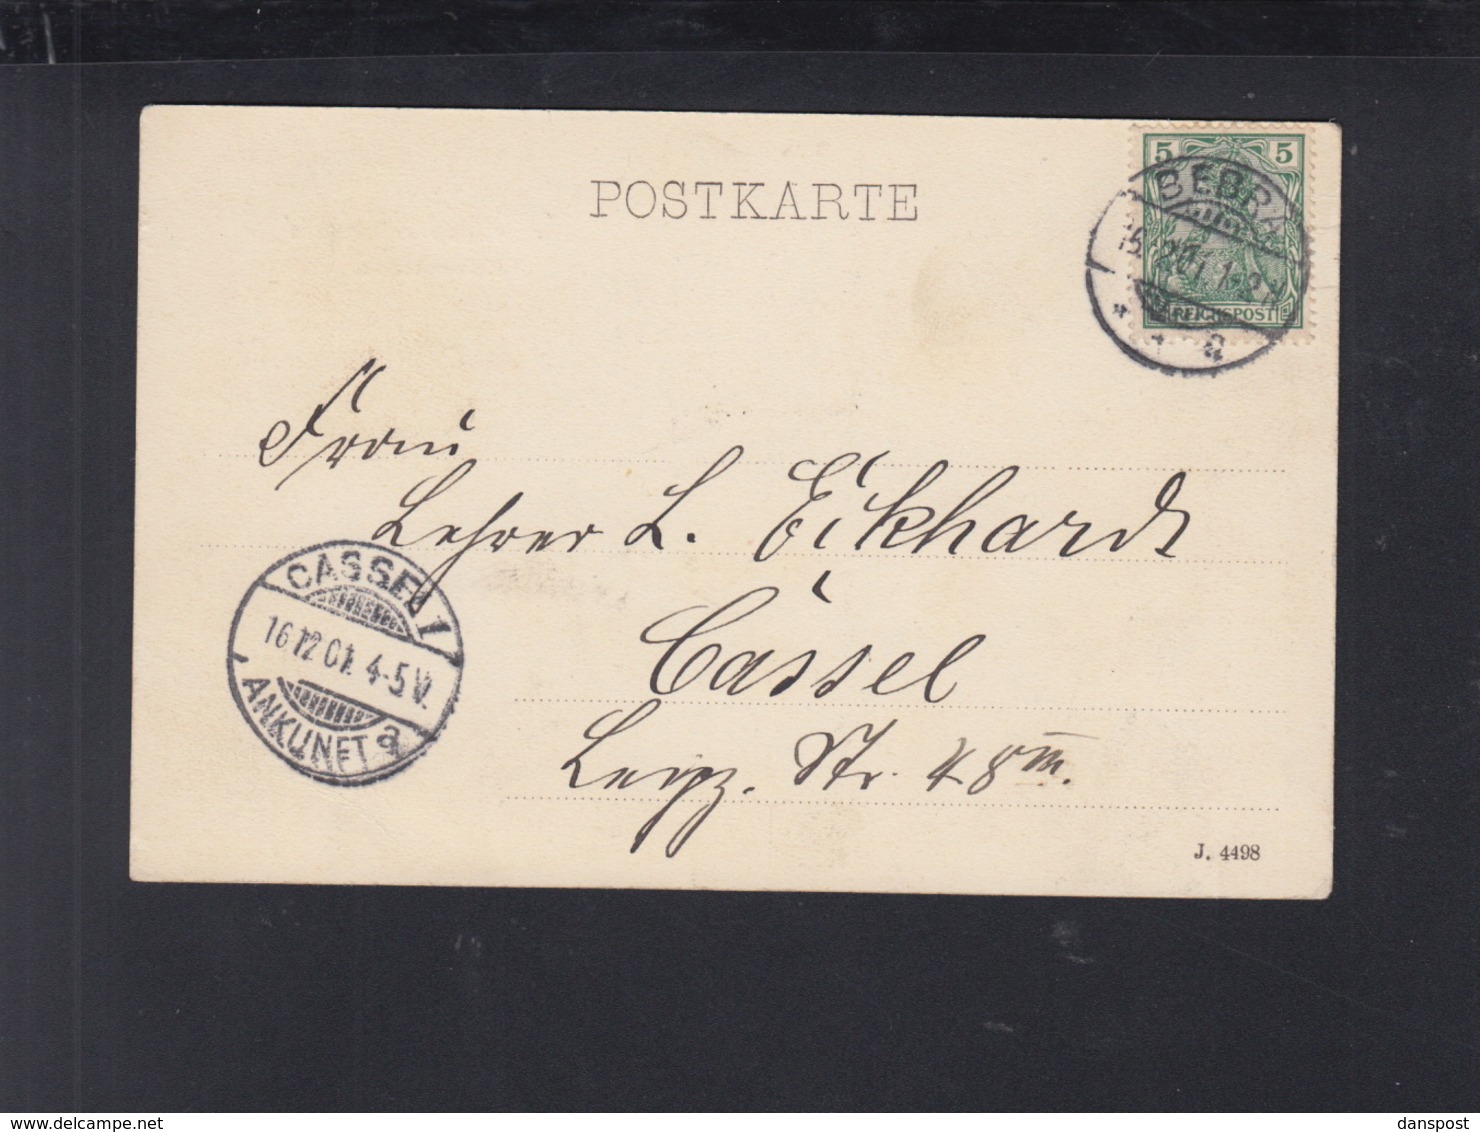 POSTKARTE
5 5
BEBRA
15.12.01. 1-2 N
REICHSPOST
a
Frau
Lehrer L. Eikhardt
Cassel
Leipz. Str. 48 III.
CASSEL 1
16.12.01. 4-5 V.
ANKUNFT a
J. 4498
delcampe.net
danspost